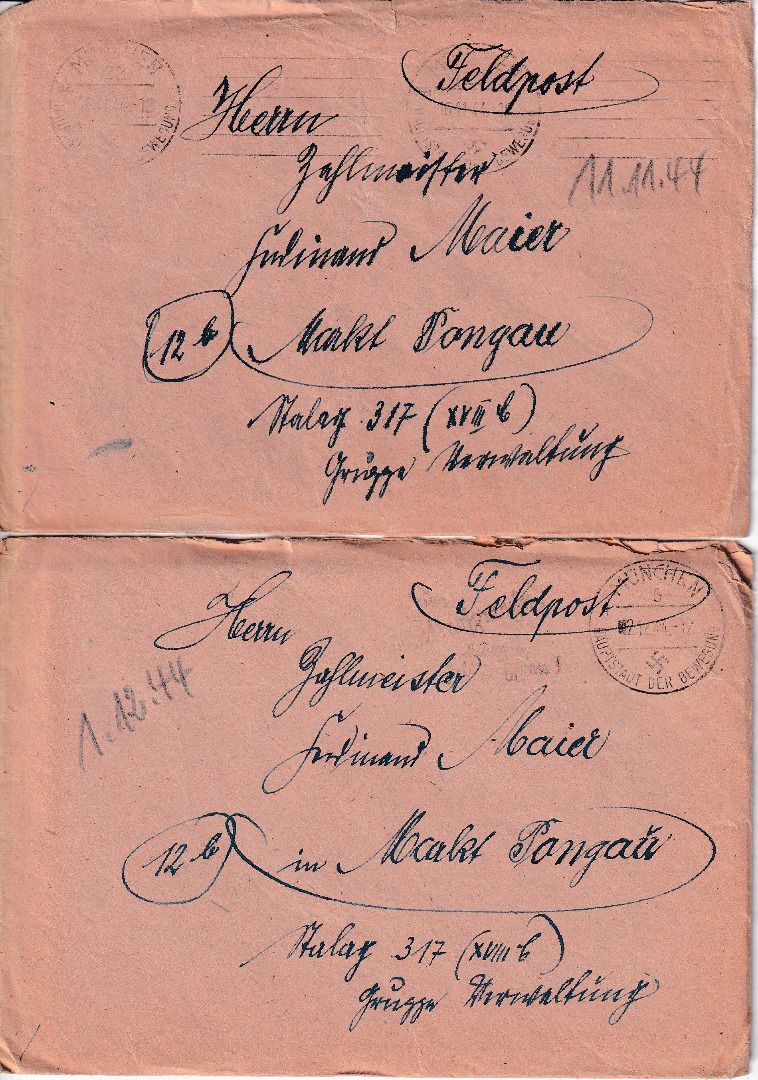 Feldpost
Herrn
Zahlmeister
11.11.44
Ferdinand Maier
12b Markt Pongau
Stalag 317 (XVIII C)
Gruppe Verwaltung
MÜNCHEN
BEWEGUNG
Feldpost
MÜNCHEN
HAUPTSTADT DER BEWEGUNG
Herrn
Zahlmeister
1.12.44
Ferdinand Maier
12b in Markt Pongau
Stalag 317 (XVIII C)
Gruppe Verwaltung